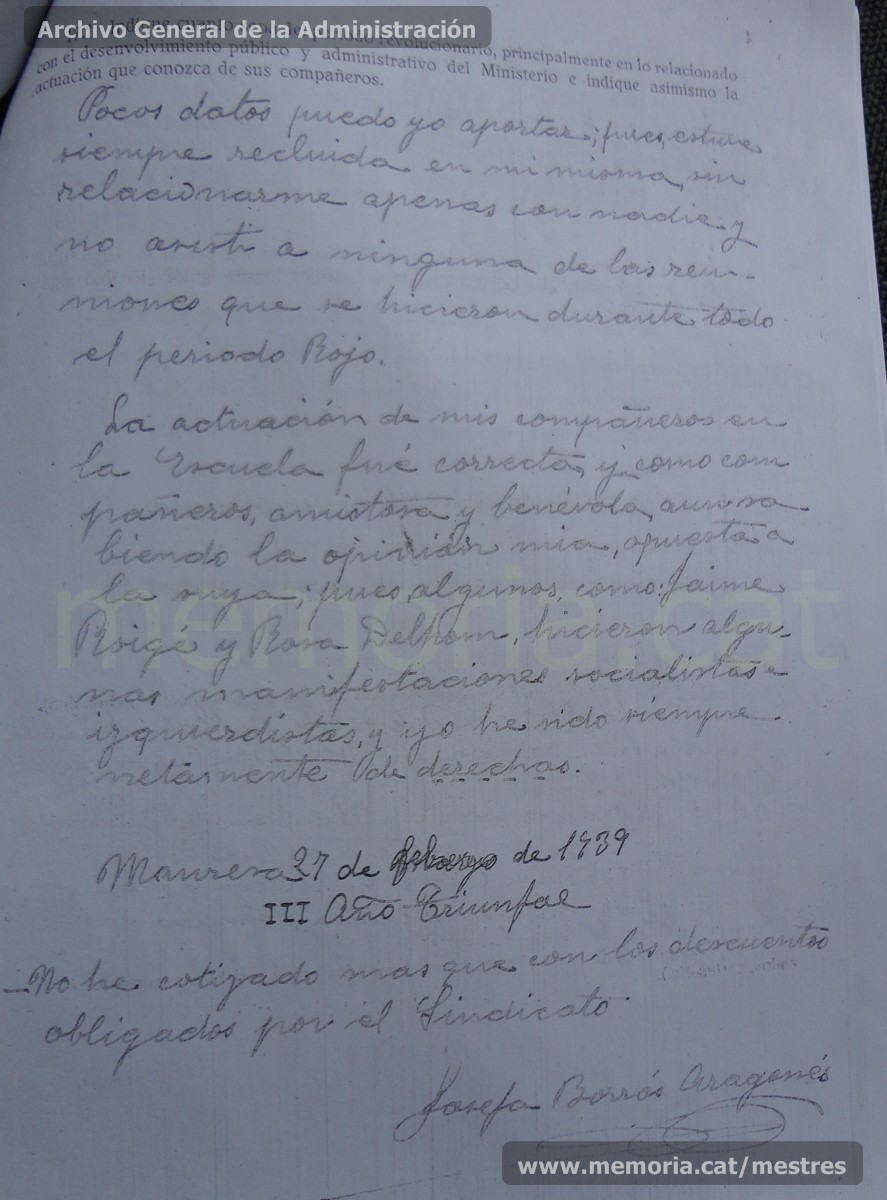 Archivo General de la Administración
Indique cuanto revolucionario, principalmente en lo relacionado
con el desenvolvimiento público y administrativo del Ministerio e indique asimismo la
actuación que conozca de sus compañeros.
Pocos datos puedo yo aportar; pues, estuve
siempre recluida en mi misma, sin
relacionarme apenas con nadie y
no asistí a ninguna de las reu-
niones que se hicieron durante todo
el periodo Rojo.
La actuación de mis compañeros en
la Escuela fué correcta, y como com
pañeros, amistosa y benévola, aun sa-
biendo la opinión mia, opuesta a
la suya; pues, algunos, como: Jaime
Roigé y Rosa Delhom, hicieron algu-
nas manifestaciones socialistas e
izquierdistas, y yo he sido siempre
netamente de derechas.
memoria.cat
Manresa 27 de febrero de 1939
III Año Triunfal
-No he cotizado mas que con los descuentos
obligados por el Sindicato
Josefa Borrás Aragonés
www.memoria.cat/mestres